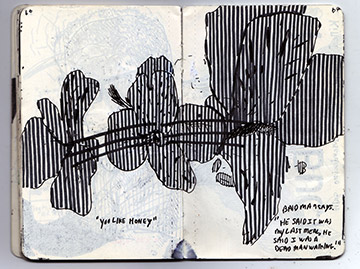 "YOU LIKE HONEY"
BNDMAN SAYS.
"HE SAID IT WAS
MY LAST MEAL, HE
SAID I WAS A
DEAD MAN WAITING."